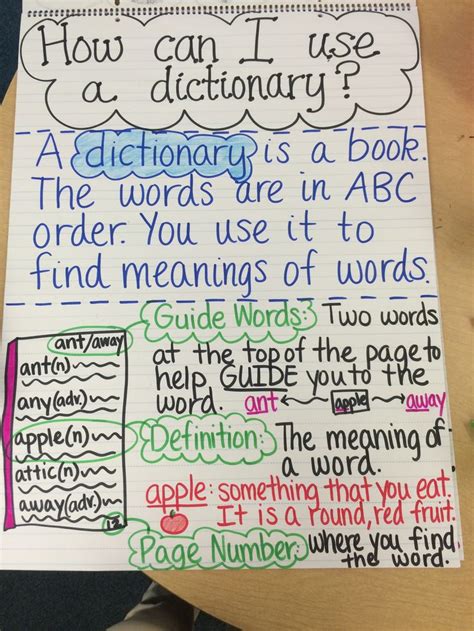 How can I use
a dictionary?
A dictionary is a book.
The words are in ABC
order. You use it to
find meanings of words.
Guide Words: Two words
at the top of the page to
help GUIDE you to the
word. ant apple away
ant/away
ant(n)
any(adv.)
apple(n)
attic(n)
away(adv.)
12
Definition: The meaning of
a word.
apple: something that you eat.
It is a round, red fruit.
Page Number: where you find
the word.